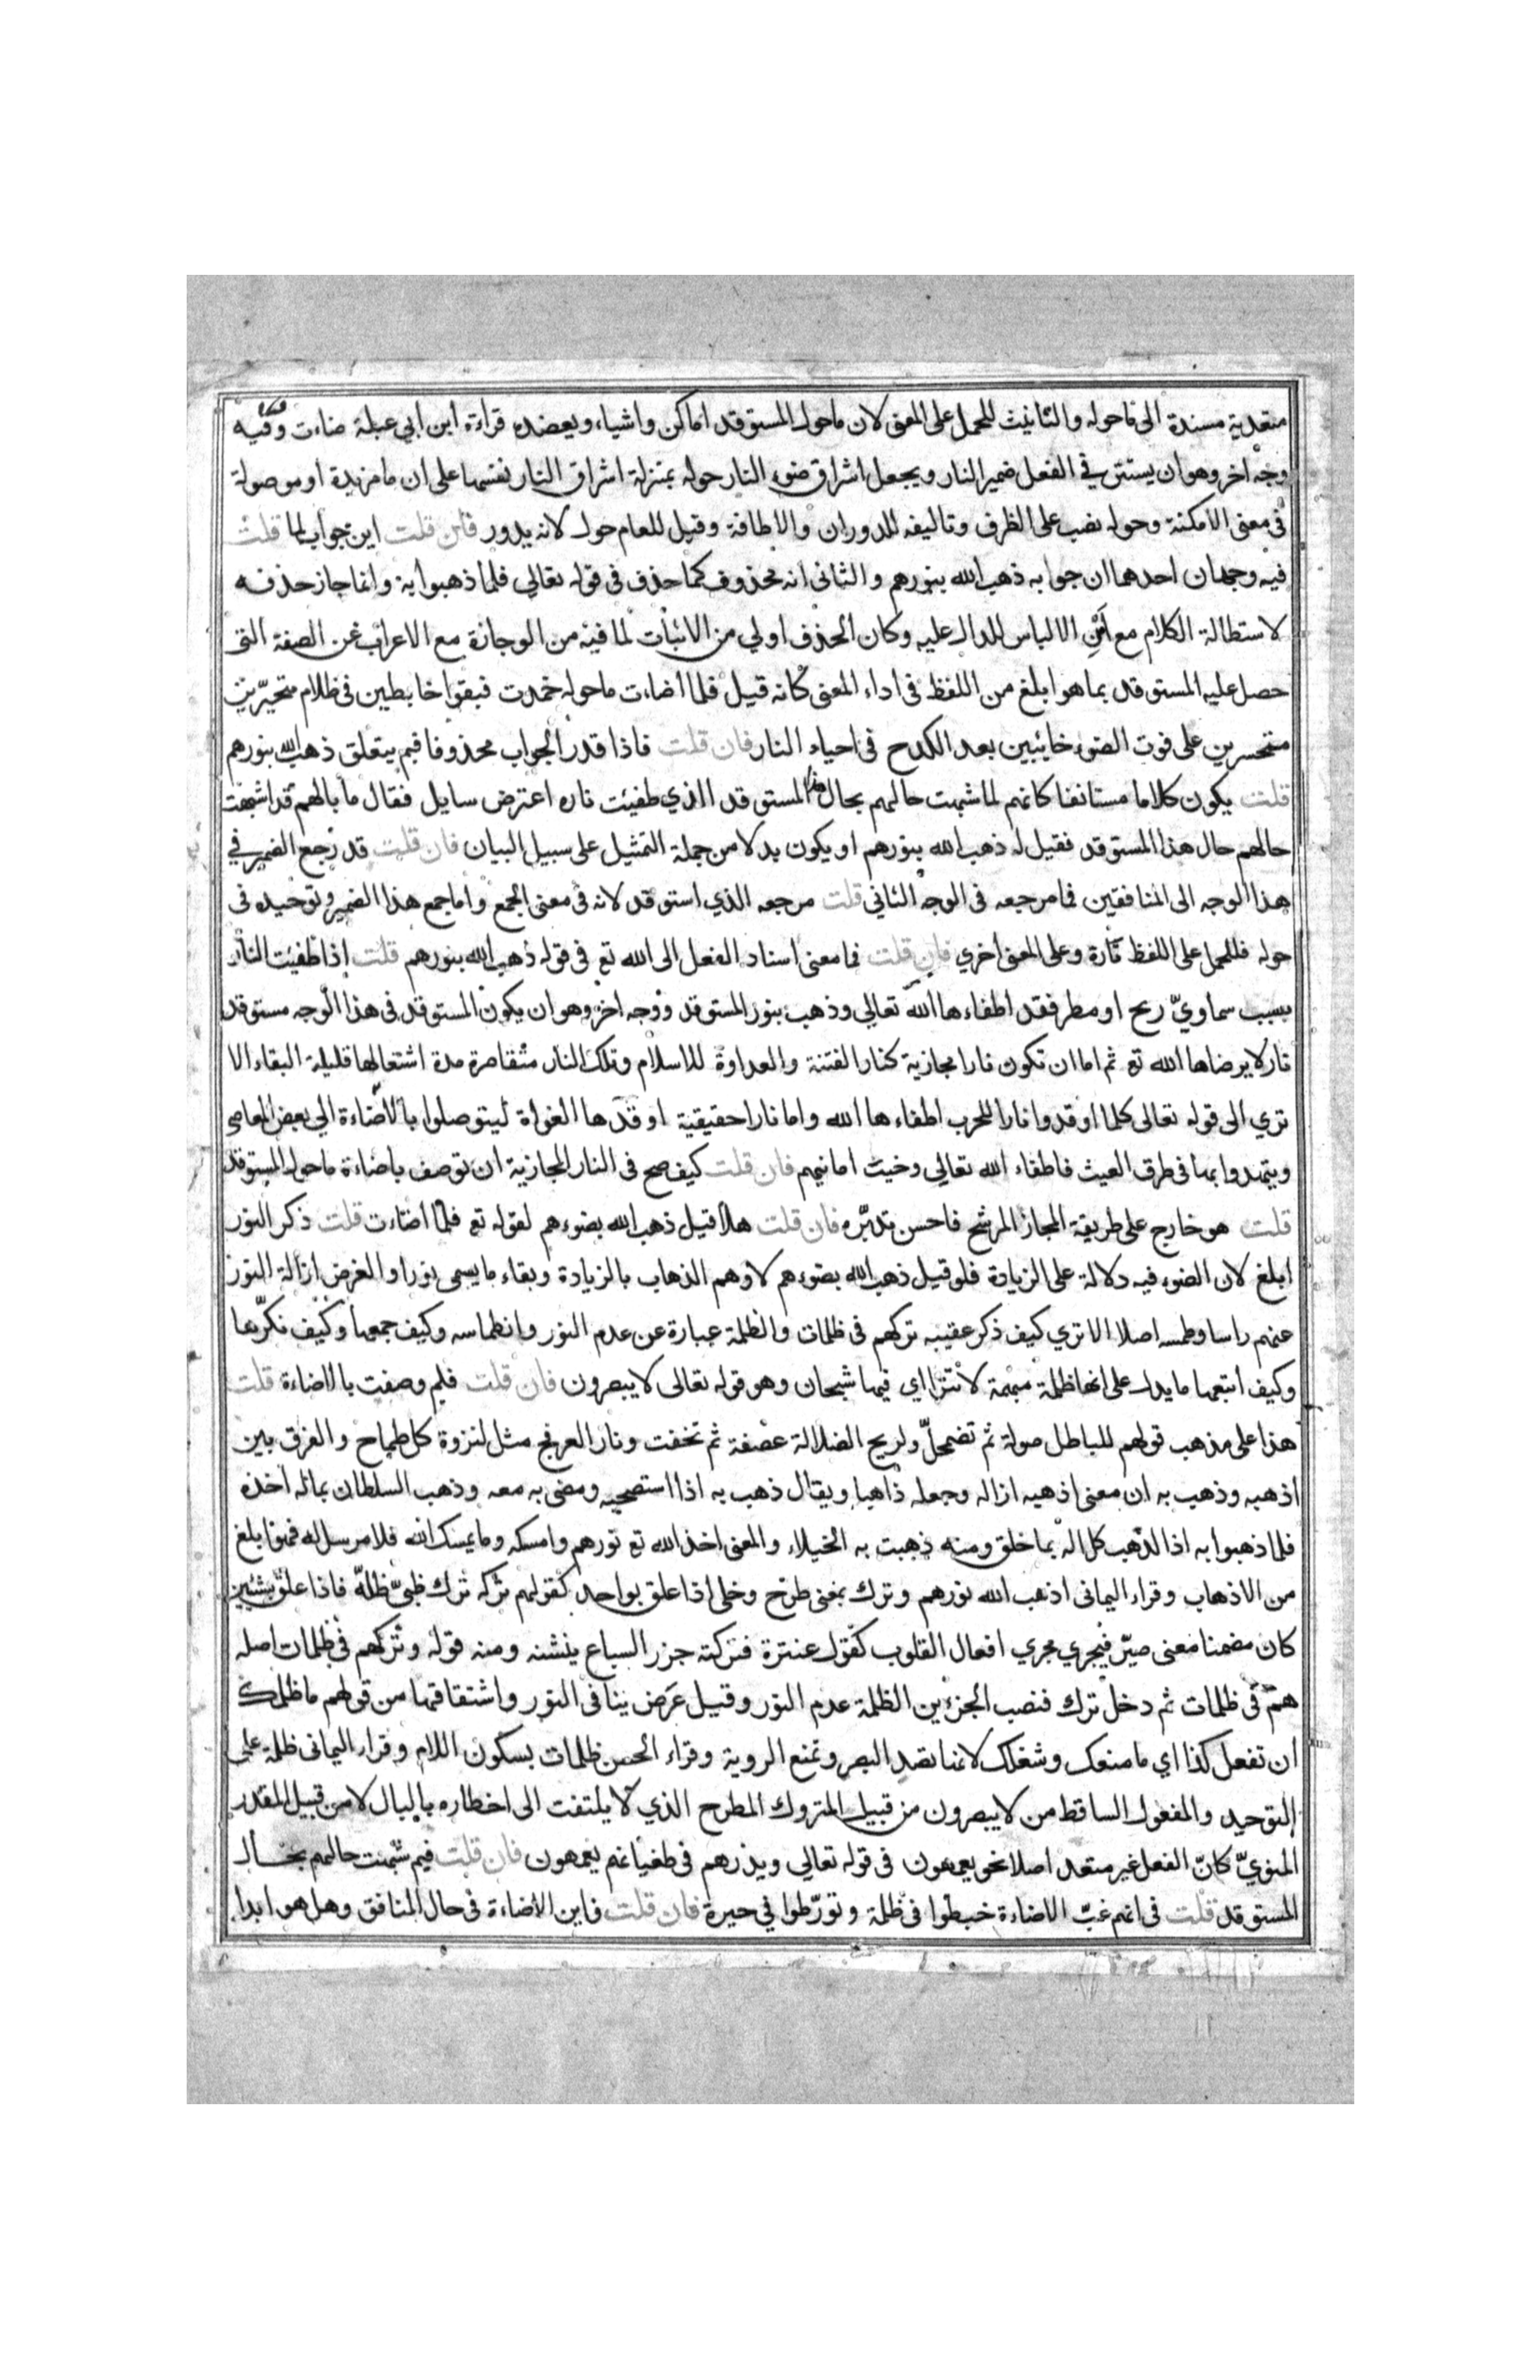 متعدية مسندة الى ما حوله والتانيث للحمل على المعنى لان ما حول المستوقد اماكن واشياء ويعضده قراءة ابن ابي عبلة ضاءت وفيه
وجه اخر وهو ان يستتر في الفعل ضمير النار ويجعل اشراق ضوء النار حوله بمنزلة اشراق النار نفسها على ان ما مزيدة او موصولة
في معنى الامكنة وحوله نصب على الظرف وتاليفه للدوران والاطافة وقيل للعام حول لانه يدور فان قلت اين جواب لما قلت
فيه وجهان احدهما ان جوابه ذهب الله بنورهم والثاني انه محذوف كما حذف في قوله تعالي فلما ذهبوا به وانما جاز حذفه
لاستطالة الكلام مع امن الالباس للدال عليه وكان الحذف اولي من الاثبات لما فيه من الوجازة مع الاعراب عن الصفة التى
حصل عليه المستوقد بما هو ابلغ من اللفظ في اداء المعنى كانه قيل فلما اضاءت ما حوله خمدت فبقوا خابطين في ظلام متحيرين
متحسرين على فوت الضوء خائبين بعد الكدح في احياء النار فان قلت فاذا قدر الجواب محذوفا فبم يتعلق ذهب الله بنورهم
قلت يكون كلاما مستانفا كانهم لما شبهت حالهم بحال المستوقد الذي طفيئت ناره اعترض سايل فقال ما بالهم قد اشبهت
حالهم حال هذا المستوقد فقيل له ذهب الله بنورهم او يكون بدلا من جملة التمثيل على سبيل البيان فان قلت قد رجع الضمير في
هذا الوجه الى المنافقين فما مرجعه في الوجه الثاني قلت مرجعه الذي استوقد لانه في معنى الجمع واما جمع هذا الضمير وتوحيده في
حوله فللحمل على اللفظ تارة وعلى المعنى اخري فان قلت فما معنى اسناد الفعل الى الله تع في قوله ذهب الله بنورهم قلت اذا طفيئت النار
بسبب سماويّ ريح او مطر فقد اطفاءها الله تعالي وذهب بنور المستوقد ووجه اخر وهو ان يكون المستوقد في هذا الوجه مستوقد
نار لا يرضاها الله تع ثم اما ان تكون نارا مجازية كنار الفتنة والعداوة للاسلام وتلك النار متقاصرة مدة اشتعالها قليلة البقاء الا
تري الى قوله تعالى كلما اوقدوا نارا للحرب اطفاءها الله واما نارا حقيقية اوقدها الغواة ليتوصلوا بالاضاءة الي بعض المعاصي
ويتهدوا بها في طرق العيث فاطفاء الله تعالي وخيت امانيهم فان قلت كيف صح في النار المجازية ان توصف باضاءة ما حول المستوقد
قلت هو خارج على طريقة المجاز المرشح فاحسن تدبّره فان قلت هلا قيل ذهب الله بضوءهم لقوله تع فلما اضاءت قلت ذكر النور
ابلغ لان الضوء فيه دلالة على الزيادة فلو قيل ذهب الله بضوءهم لاوهم الذهاب بالزيادة وبقاء ما يسمى نورا والغرض ازالة النور
عنهم راسا وطمسه اصلا الا تري كيف ذكر عقيبه تركهم في ظلمات والظلمة عبارة عن عدم النور وانطماسه وكيف جمعها وكيف نكرّها
وكيف اتبعها ما يدل على انها ظلمة مبهمة لا تترااي فيها شبحان وهو قوله تعالى لا يبصرون فان قلت فلم وصفت بالاضاءة قلت
هذا على مذهب قولهم للباطل صولة ثم تضمحلّ ولريح الضلالة عصفة ثم تخفت ونار العرفج مثل لنزوة كل طماح والفرق بين
اذهبه وذهب به ان معنى اذهبه ازاله وجعله ذاهبا ويقال ذهب به اذا استصحبه ومضى به معه وذهب السلطان بماله اخذه
فلما ذهبوا به اذا لذهب كل اله بما خلق ومنه ذهبت به الخيلاء والمعنى اخذ الله تع نورهم وامسكه وما يمسك الله فلا مرسل له فهو ابلغ
من الاذهاب وقراء اليماني اذهب الله نورهم وترك بمعنى طرح وخلى اذا علق بواحد كقولهم تركه ترك ظبيّ ظلّه فاذا علق بشئين
كان مضمنا معنى صيّر فيجري مجري افعال القلوب كقول عنترة فتركته جزر السباع ينشنه ومنه قوله وتركهم في ظلمات اصله
هم في ظلمات ثم دخل ترك فنصب الجزءين الظلمة عدم النور وقيل عرض ينافى النور واشتقاقها من قولهم ما ظلمك
ان تفعل كذا اي ما منعك وشغلك لانها تسد البصر وتمنع الروية وقراء الحسن ظلمات بسكون اللام وقراء اليماني ظلمة على
التوحيد والمفعول الساقط من لا يبصرون من قبيل المتروك المطرح الذي لا يلتفت الى اخطاره بالبال لا من قبيل المقدر
المنويّ كانّ الفعل غير متعد اصلا نحو يعمهون في قوله تعالي ويذرهم في طغيانهم يعمهون فان قلت فيم شبهت حالهم بحال
المستوقد قلت في انهم غبّ الاضاءة خبطوا في ظلمة وتورّطوا في حيرة فان قلت فاين الاضاءة في حال المنافق وهل هو ابدا